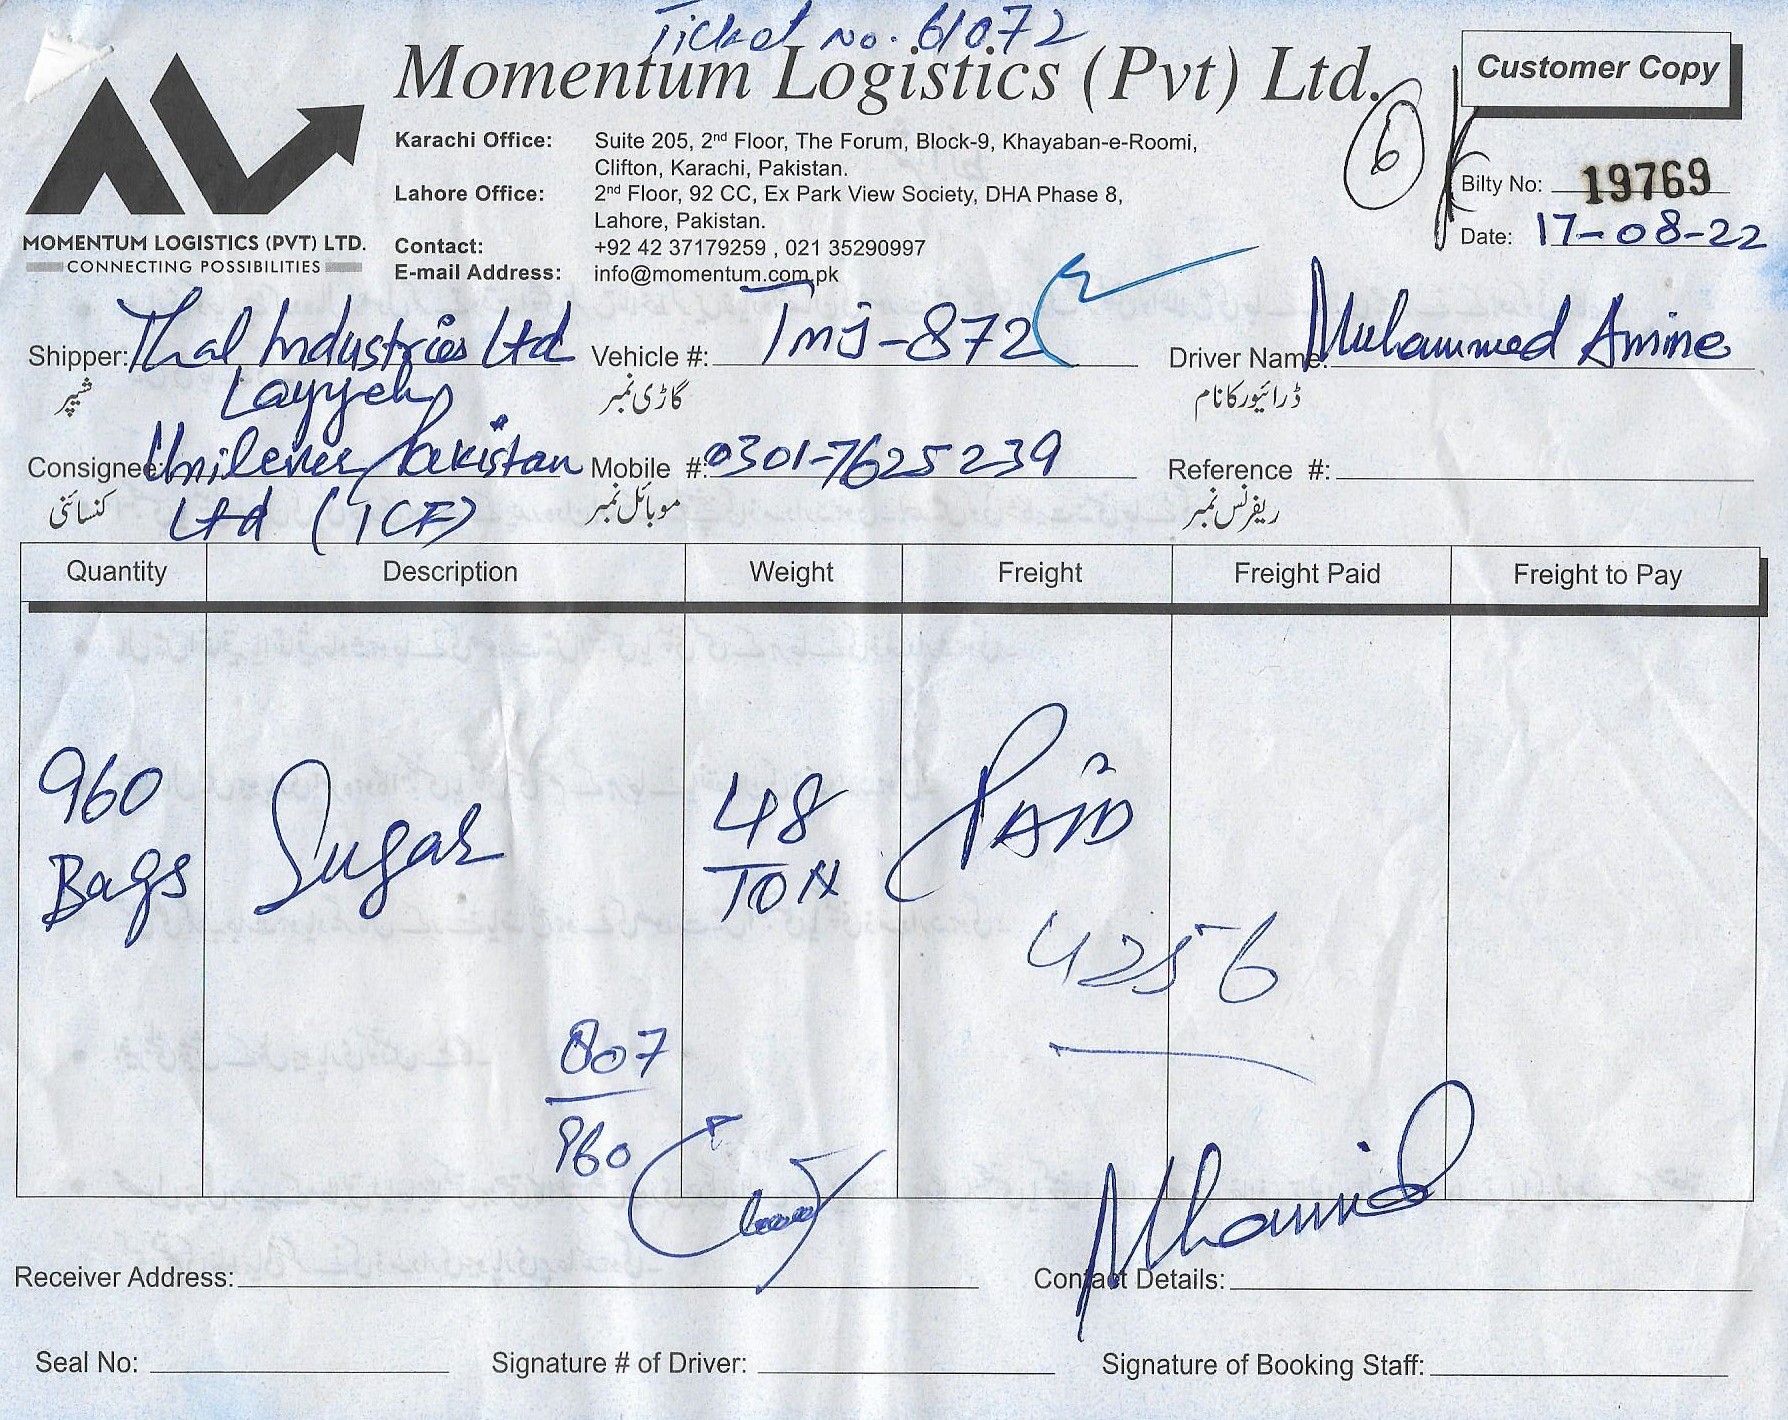 Ticket No. 61072
Momentum Logistics (Pvt) Ltd.
Customer Copy
6
MOMENTUM LOGISTICS (PVT) LTD.
CONNECTING POSSIBILITIES
Karachi Office: Suite 205, 2nd Floor, The Forum, Block-9, Khayaban-e-Roomi,
Clifton, Karachi, Pakistan.
Lahore Office: 2nd Floor, 92 CC, Ex Park View Society, DHA Phase 8,
Lahore, Pakistan.
Contact: +92 42 37179259 , 021 35290997
E-mail Address: info@momentum.com.pk
Bilty No: 19769
Date: 17-08-22
Shipper: Thal Industries Ltd Vehicle #: TMJ-872 Driver Name: Muhammed Amine
Layyeh
شیپر گاڑی نمبر ڈرائیور کا نام
Consignee: Unilever Pakistan Mobile #: 0301-7625239 Reference #:
Ltd (TCF)
کنسائنی موبائل نمبر ریفرنس نمبر
Quantity Description Weight Freight Freight Paid Freight to Pay
960 Bags Sugar 48 TON PAID
4256
807
960
Receiver Address: Contact Details:
Seal No: Signature # of Driver: Signature of Booking Staff: